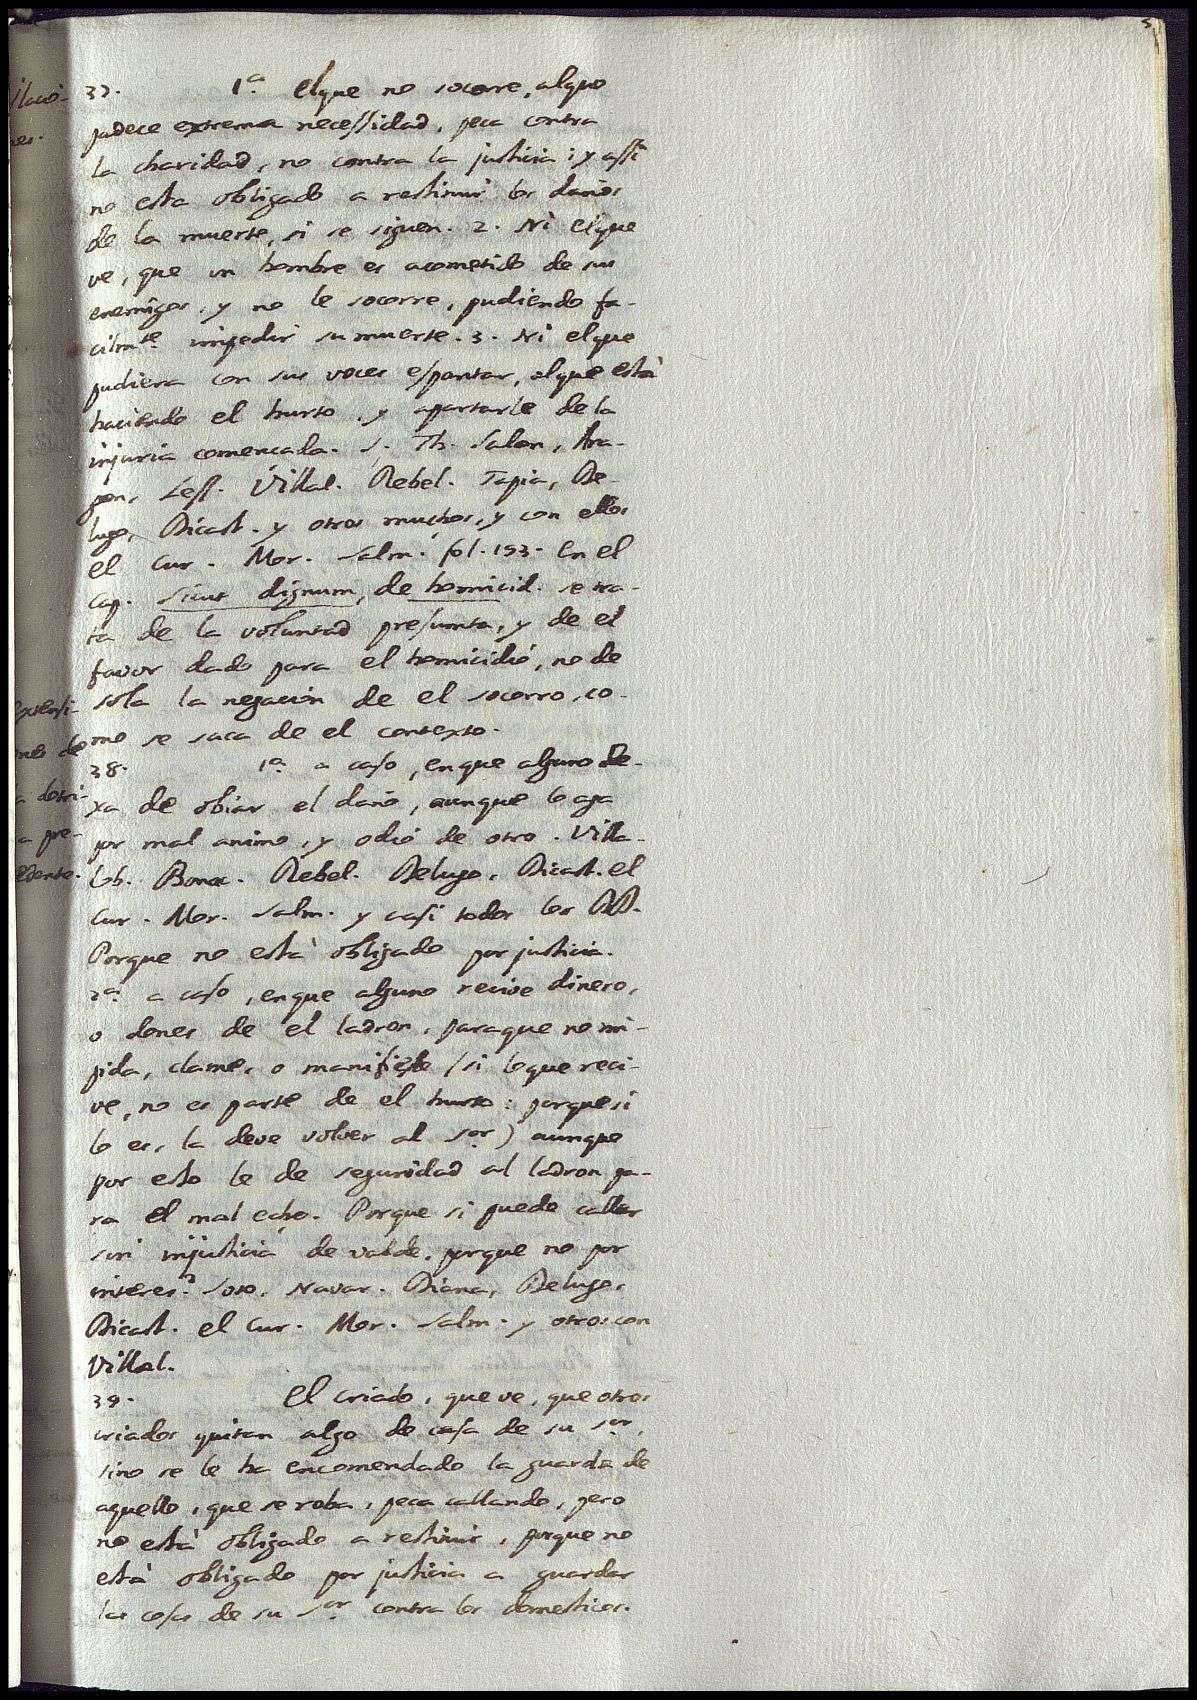 37. 1ª. El que no socorre, al que
padece extrema necessidad, peca contra
la charidad, no contra la justicia; y assi
no esta obligado a restituir los daños
de la muerte, si se siguen. 2. Ni el que
ve, que un hombre es acometido de sus
enemigos, y no le socorre, pudiendo fa-
cilmte. impedir su muerte. 3. Ni el que
pudiera con sus voces espantar, al que està
haciendo el hurto, y apartarle de la
injuria comencada. S. Th. Salon, Ara-
gon, Less. Villal. Rebel. Tapia, De-
lugo, Dicast. y otros muchos, y con ellos
el Cur. Mor. Salm. fol. 193. En el
Cap. Sicut dignum, de homicid. se tra-
ta de la voluntad presunta, y de el
favor dado para el homicidio, no de
sola la negacion de el socorro, co-
mo se saca de el contexto.
38. 1ª. a caso, en que alguno de-
xa de obiar el daño, aunque lo aga
por mal animo, y odio de otro. Villa-
lob. Bonac. Rebel. Delugo, Dicast. el
Cur. Mor. Salm. y casi todos los DD.
Porque no està obligado por justicia.
2ª. a caso, en que alguno recive dinero,
o dones de el ladron, para que no im-
pida, clame, o manifieste (si lo que reci-
ve, no es parte de el hurto: porque si
lo es, la deve volver al Sor.) aunque
por esto le de seguridad al ladron pa-
ra el mal echo. Porque si puede callar
sin injusticia de valde, porque no por
interes? Soto, Navar. Diana, Delugo,
Dicast. el Cur. Mor. Salm. y otros con
Villal.
39. El criado, que ve, que otros
criados quitan algo de casa de su Sor.
sino se le ha encomendado la guarda de
aquello, que se roba, peca callando, pero
no està obligado a restituir, porque no
està obligado por justicia a guardar
las cosas de su Sor. contra los domesticos.